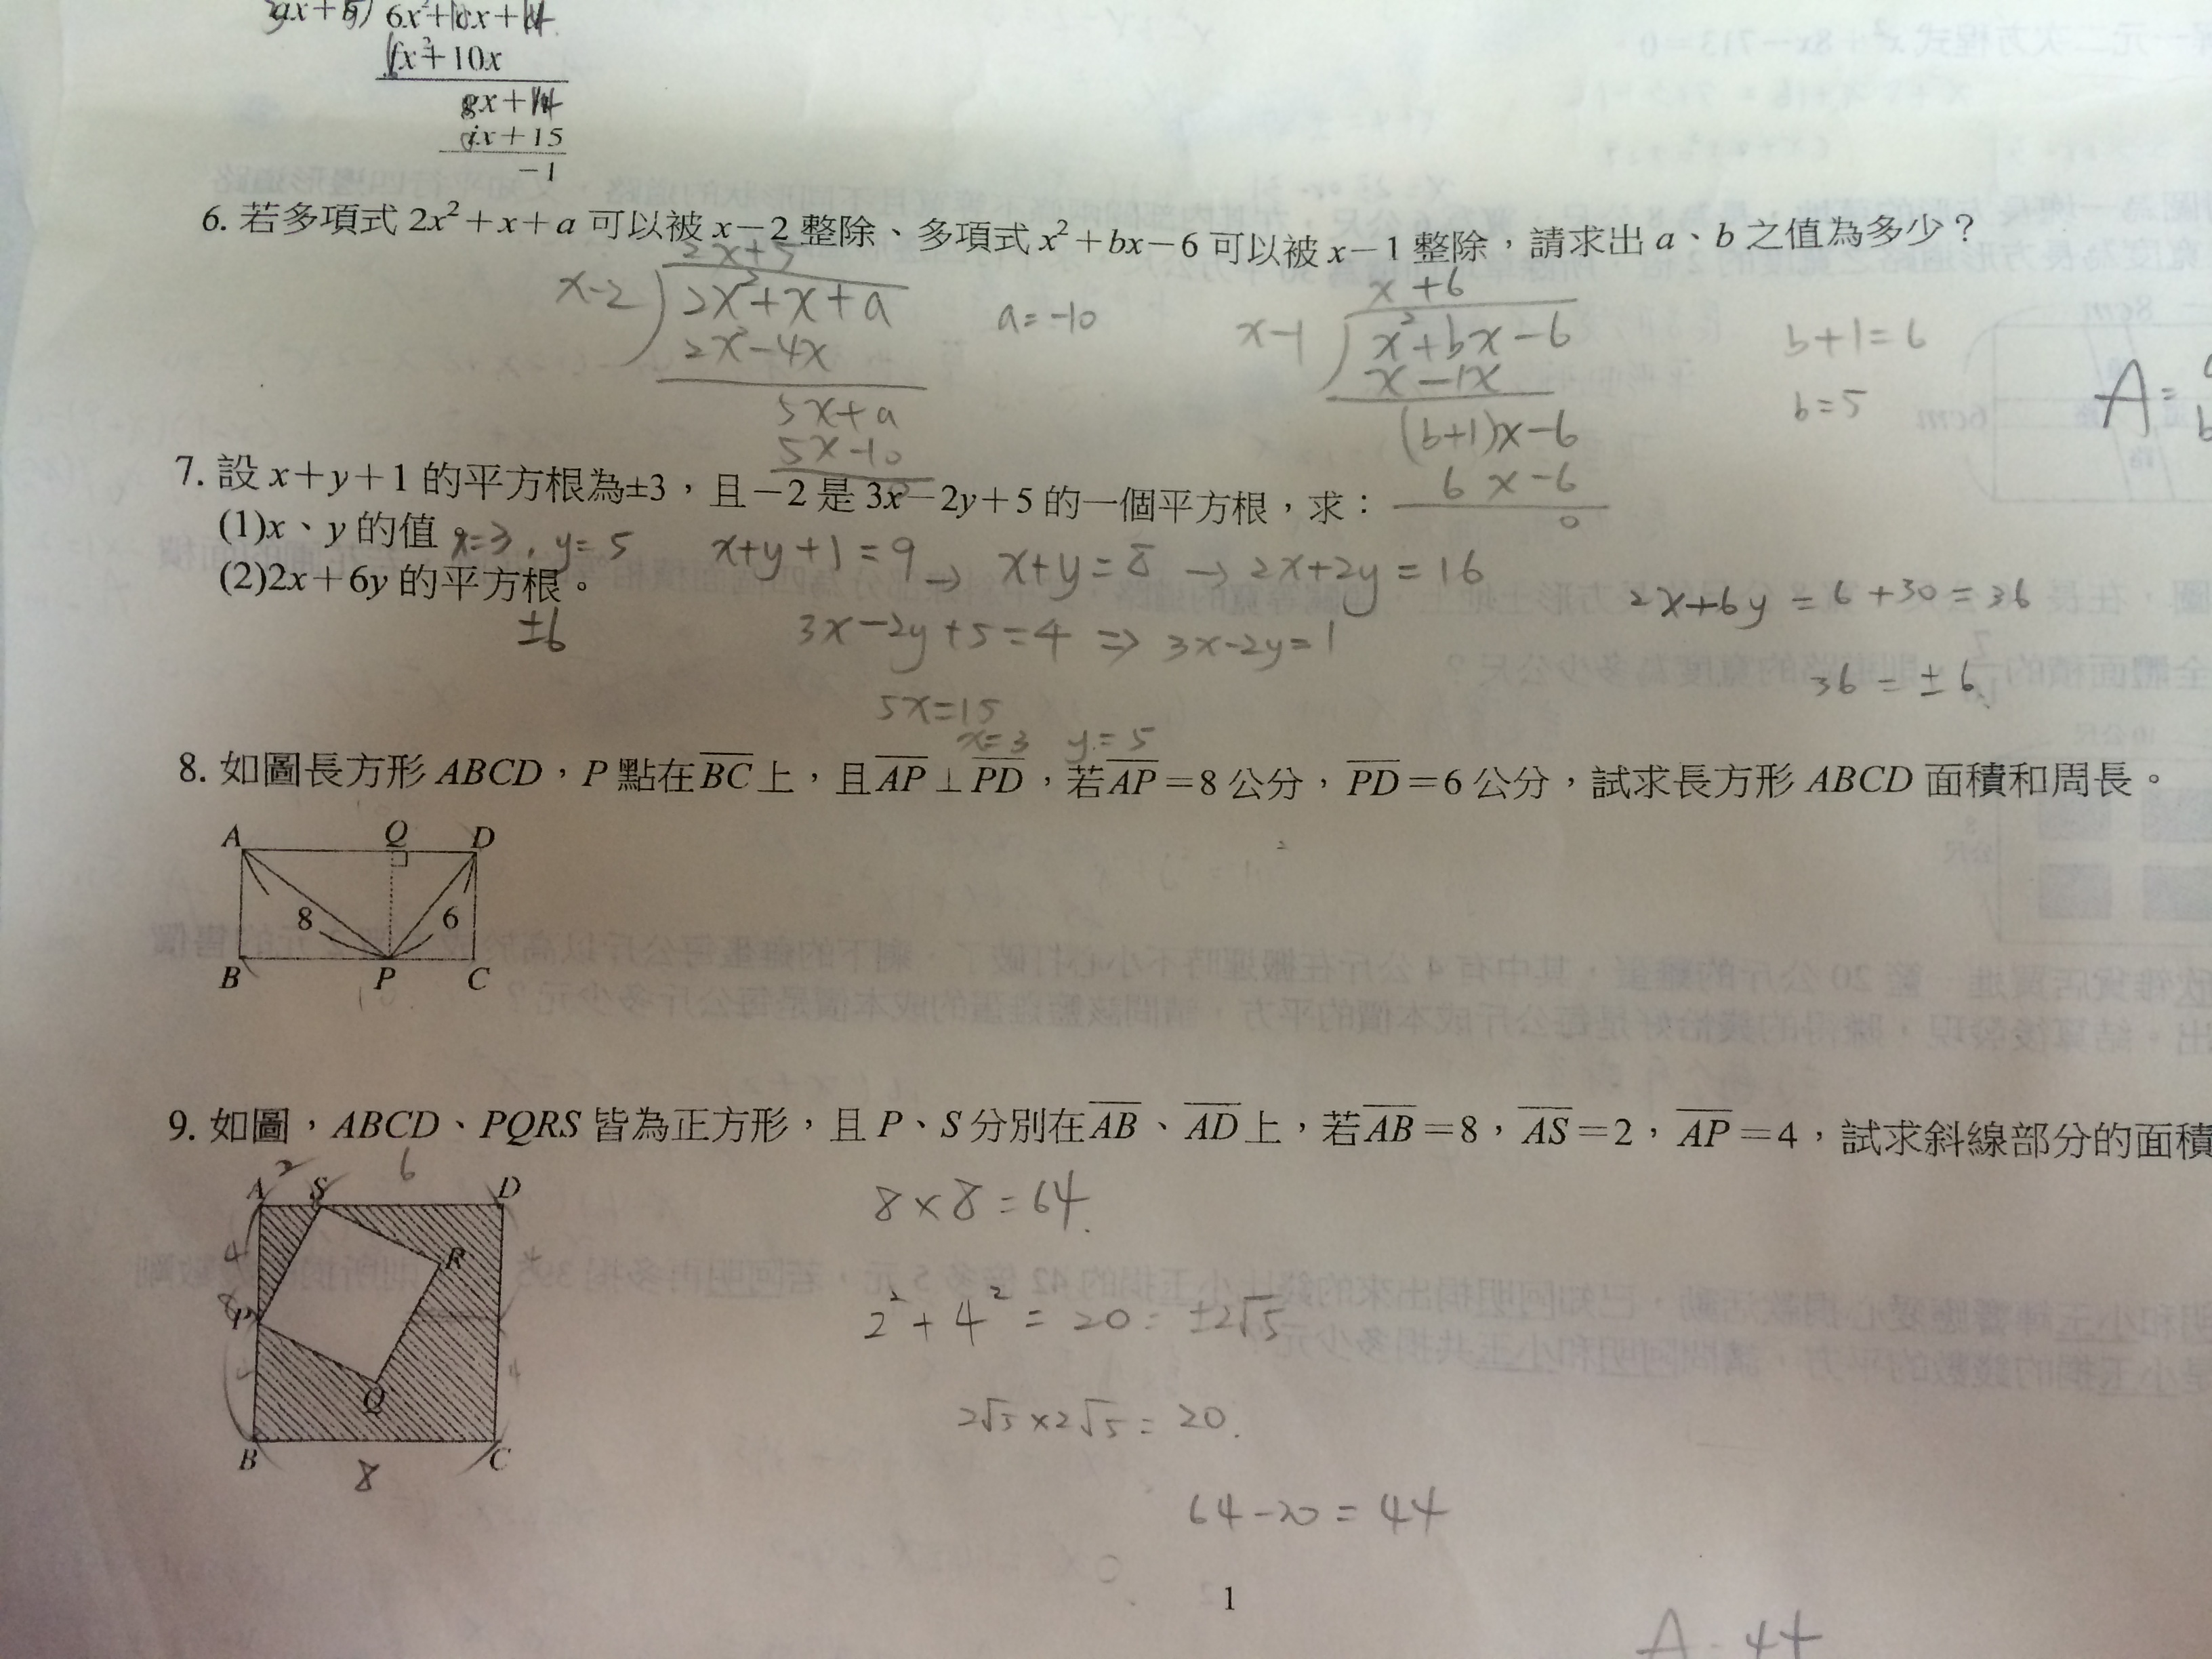 6x²+
x²+10x
x+15
−1
6. 若多項式 2x²+x+a 可以被 x−2 整除、多項式 x²+bx−6 可以被 x−1 整除，請求出 a、b 之值為多少？
2x+5
x-2 ) 2x²+x+a
2x²-4x
5x+a
5x-10
0
a=-10
x+6
x-1 ) x²+bx-6
x-1x
(b+1)x-6
6x-6
0
b+1=6
b=5
A=
7. 設 x+y+1 的平方根為±3，且−2 是 3x−2y+5 的一個平方根，求：
(1)x、y 的值。x=3, y=5
x+y+1=9 → x+y=8 → 2x+2y=16
(2)2x+6y 的平方根。
±6
3x-2y+5=4 ⇒ 3x-2y=1
5x=15
x=3 y=5
2x+6y=6+30=36
36=±6
8. 如圖長方形 ABCD，P 點在BC上，且AP⊥PD，若AP=8 公分，PD=6 公分，試求長方形 ABCD 面積和周長。
A Q D
8 6
B P C
9. 如圖，ABCD、PQRS 皆為正方形，且 P、S 分別在AB、AD上，若AB=8，AS=2，AP=4，試求斜線部分的面積
2 6
A S D
4 R 4
8 P
4 Q 4
B C
8
8×8=64
2²+4²=20=±2√5
2√5×2√5=20.
64-20=44
1
A. 44